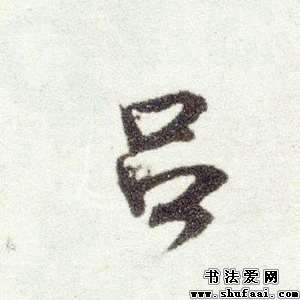 吕
书法爱网
www.shufaai.com